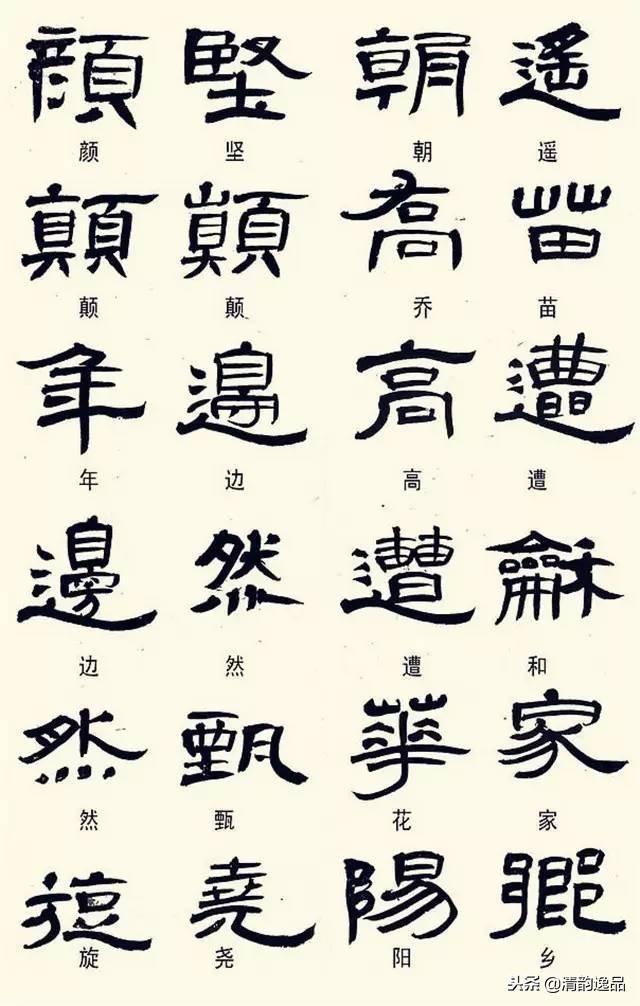 顏 堅 朝 遙
颜 坚 朝 遥
顛 顛 喬 苗
颠 颠 乔 苗
年 邊 高 遭
年 边 高 遭
邊 然 遭 龢
边 然 遭 和
然 甄 華 家
然 甄 花 家
旋 堯 陽 鄉
旋 尧 阳 乡
头条 @清韵逸品